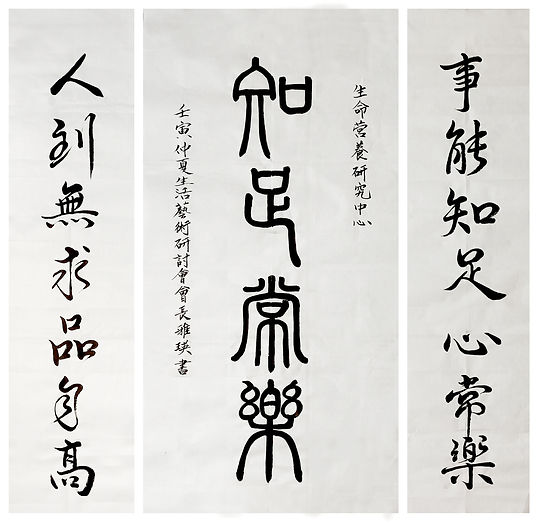 事能知足心常樂
生命营養研究中心
知足常樂
壬寅仲夏生活藝術研討會會長雅瑛書
人到無求品自高